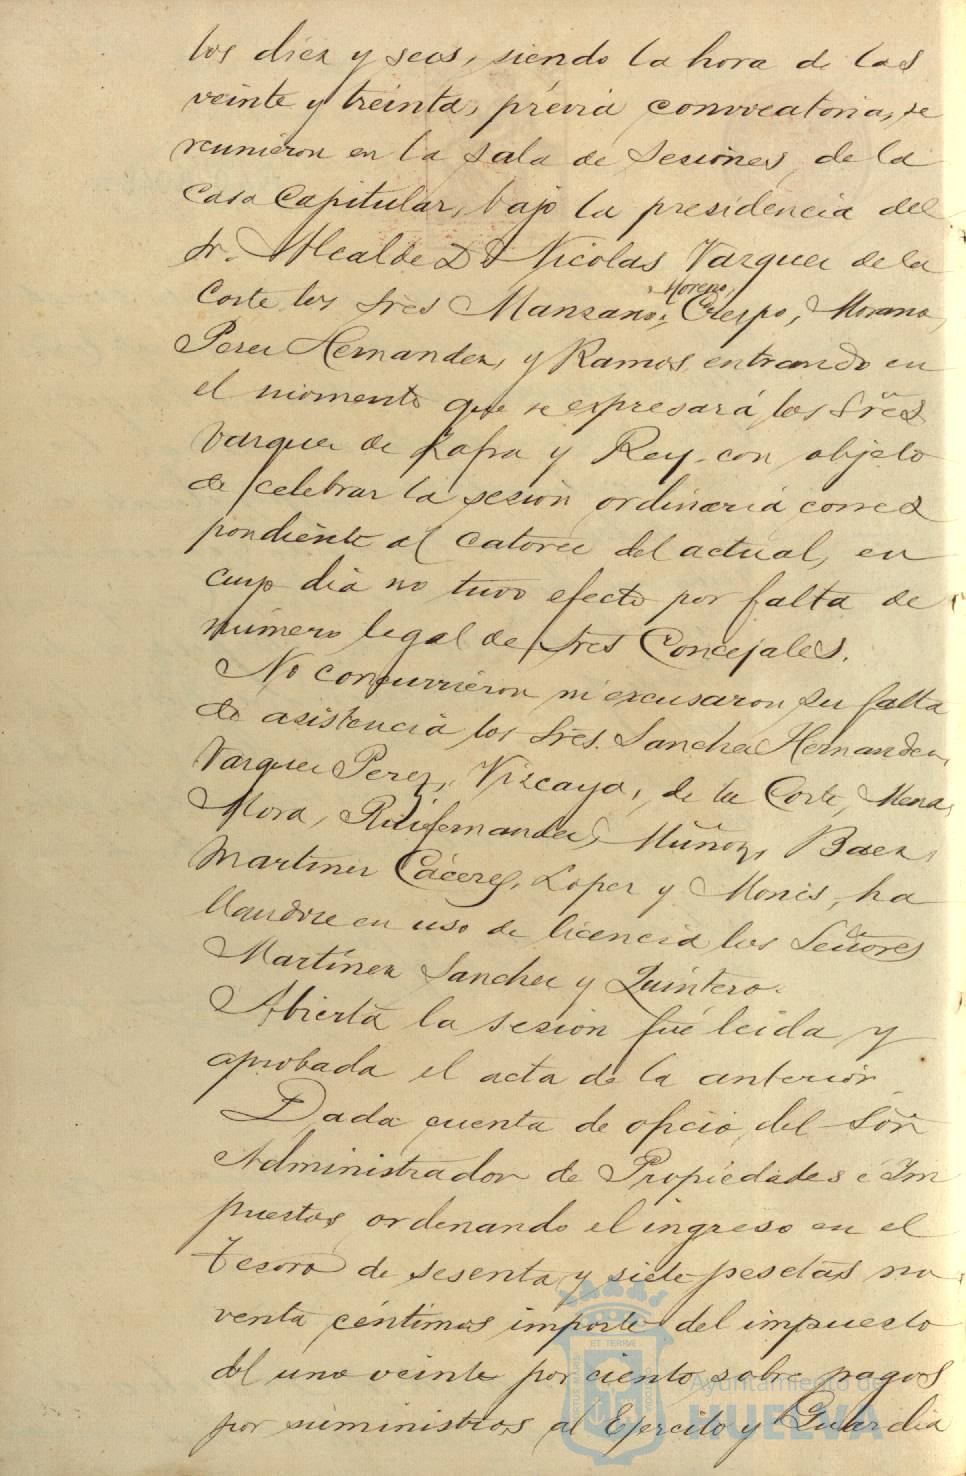 los diez y seis, siendo la hora de las
veinte y treinta, prévia convocatoria, se
reunieron en la sala de Sesiones de la
Casa Capitular, bajo la presidencia del
Sr. Alcalde D. Nicolas Vazquez de la
Moreno,
Corte los Sres Manzano, Crespo, Morano,
Perez Hernandez, y Ramos, entrando en
el momento que se expresará los Sres
Vazquez de Zafra y Rey con objeto
de celebrar la sesión ordinaria corres
pondiente al catorce del actual, en
cuyo dia no tuvo efecto por falta de
número legal de Sres Concejales.
No concurrieron ni excusaron su falta
de asistencia los Sres. Sanchez Hernandez,
Vazquez Perez, Vizcaya, de la Corte, Mena,
Mora, Ruifernandez, Muñoz, Baez,
Martinez Cáceres, Lopez y Monis, ha
llandose en uso de licencia los Señores
Martínez Sanchez y Quintero.
Abierta la sesión fué leida y
aprobada el acta de la anterior
Dada cuenta de oficio del Sōr
Administrador de Propiedades é Im
puestos ordenando el ingreso en el
Tesoro de sesenta y siete pesetas no
venta céntimos importe del impuesto
del uno veinte por ciento sobre pagos
por suministros al Ejercito y Guardia
Ayuntamiento de
HUELVA